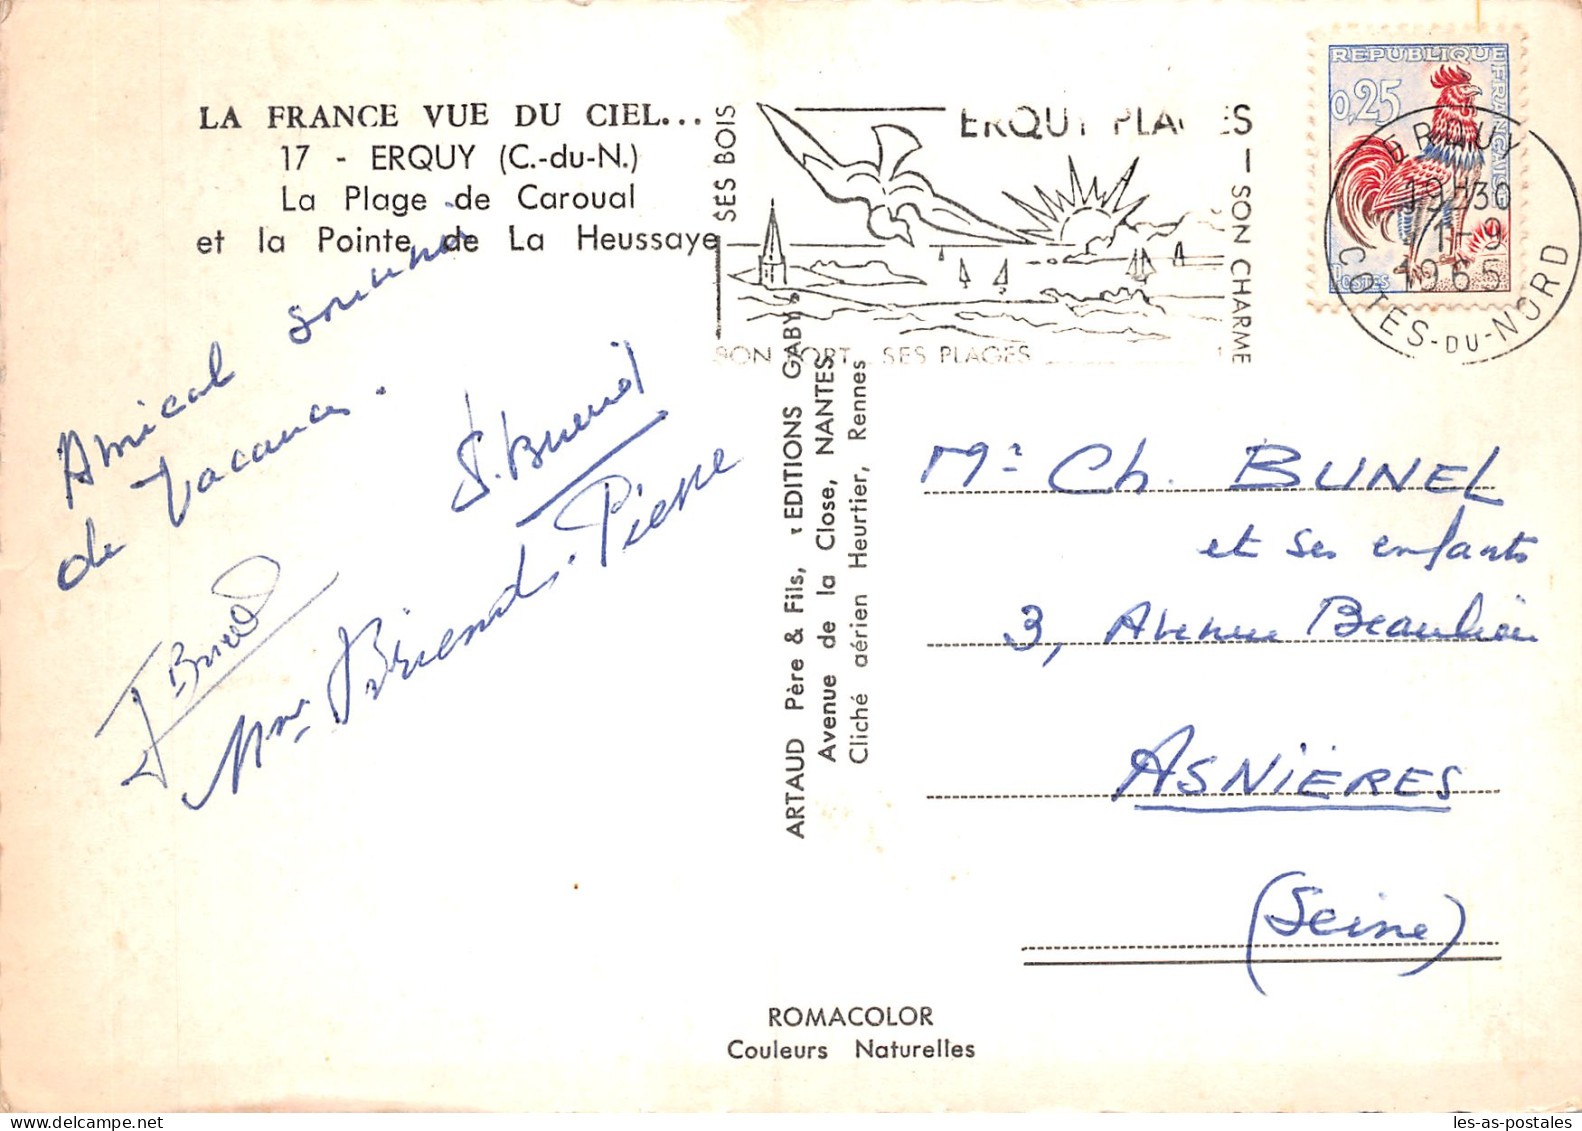 LA FRANCE VUE DU CIEL...
17 - ERQUY (C.-du-N.)
La Plage de Caroual
et la Pointe de La Heussaye
Amical souvenir
de vacances.
Mme Briend-Pierre
ARTAUD Père & Fils, « EDITIONS GABY »
Avenue de la Close, NANTES
Cliché aérien Heurtier, Rennes
SES BOIS
ERQUY PLAGES
SON CHARME
SON PORT SES PLAGES
REPUBLIQUE FRANÇAISE
0,25
POSTES
ERQUY
19H30
1-9
1965
COTES-DU-NORD
Mr Ch. BUNEL
et ses enfants
3, Avenue Beaulieu
ASNIÈRES
(Seine)
ROMACOLOR
Couleurs Naturelles
les-as-postales